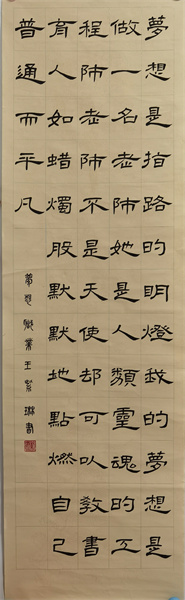 夢想是指路的明燈我的夢想是
做一名老師她是人類靈魂的工
程師老師不是天使却可以教書
育人如蜡燭般默默地點燃自己
普通而平凡
夢想職業王琳書